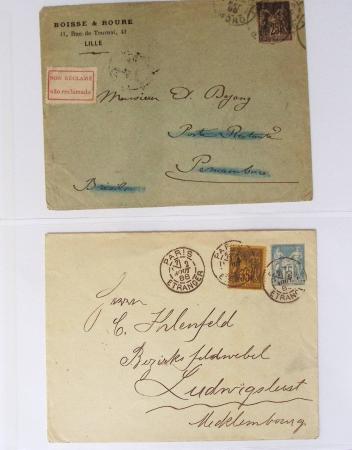 BOISSE & ROURE
41, Rue de Tournai, 41
LILLE
NON RÉCLAMÉ
não reclamado
Monsieur D. Bejong
Poste Restante
Pernambuco
Brésilien
PARIS
2
AOUT
88
ETRANGER
PARIS
ETRANGER
15
Herrn
C. Ihlenfeld
Bezirksfeldwebel
Ludwigslust
Mecklembourg.